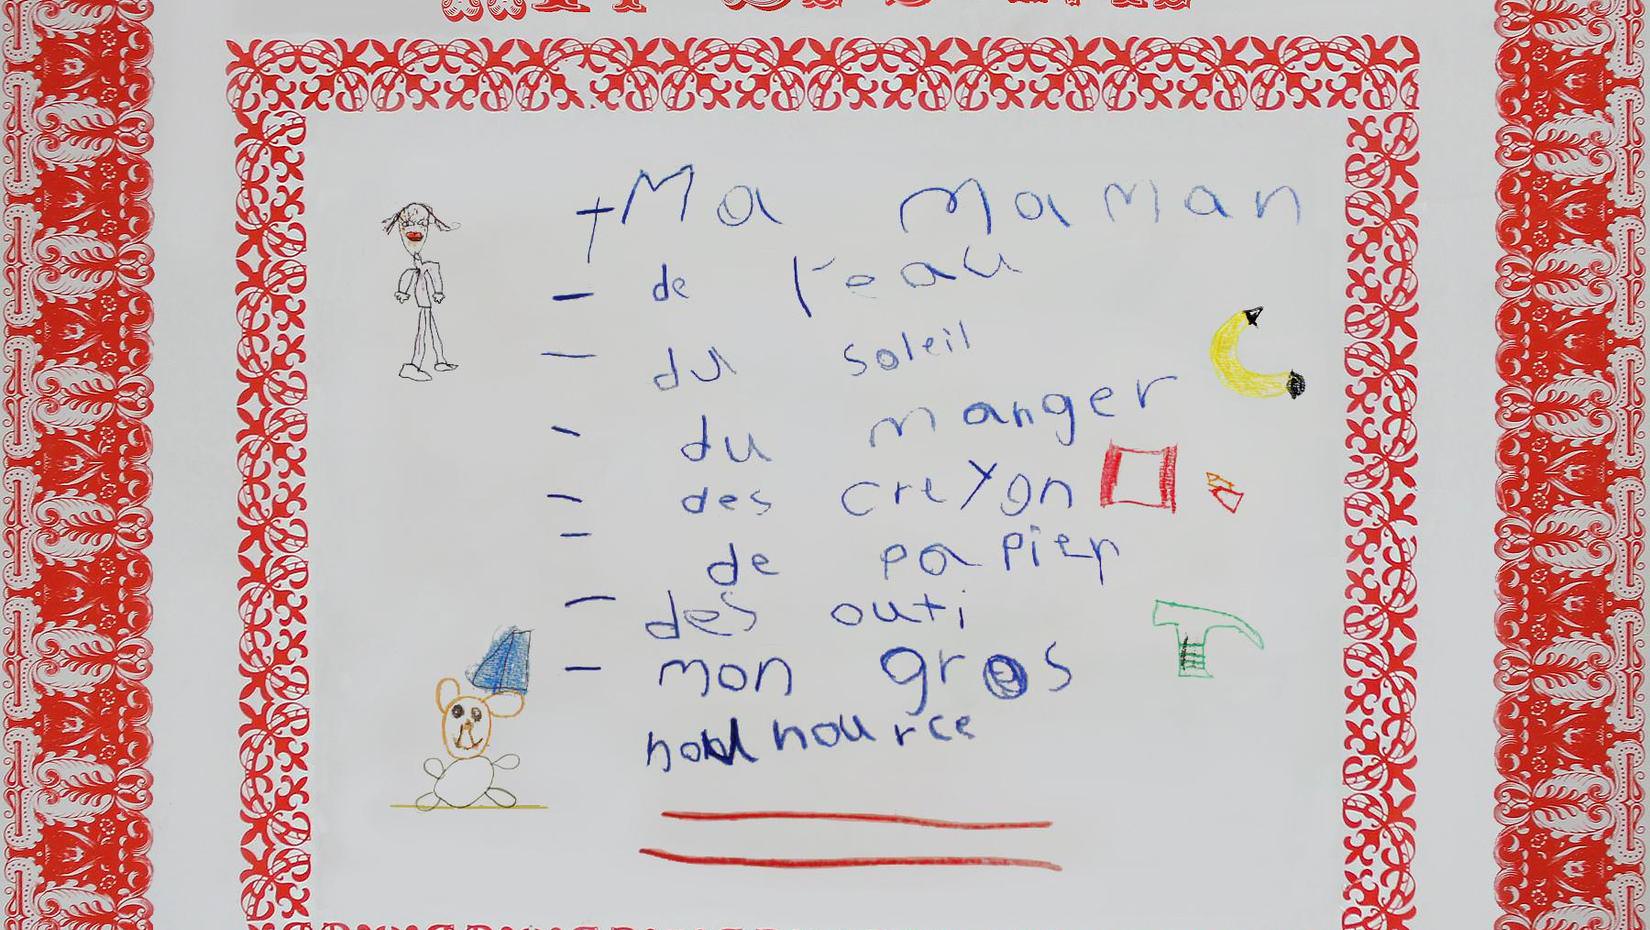 + Ma maman
- de l'eau
- du soleil
- du manger
- des creyon
- de papier
- des outi
- mon gros
nounource